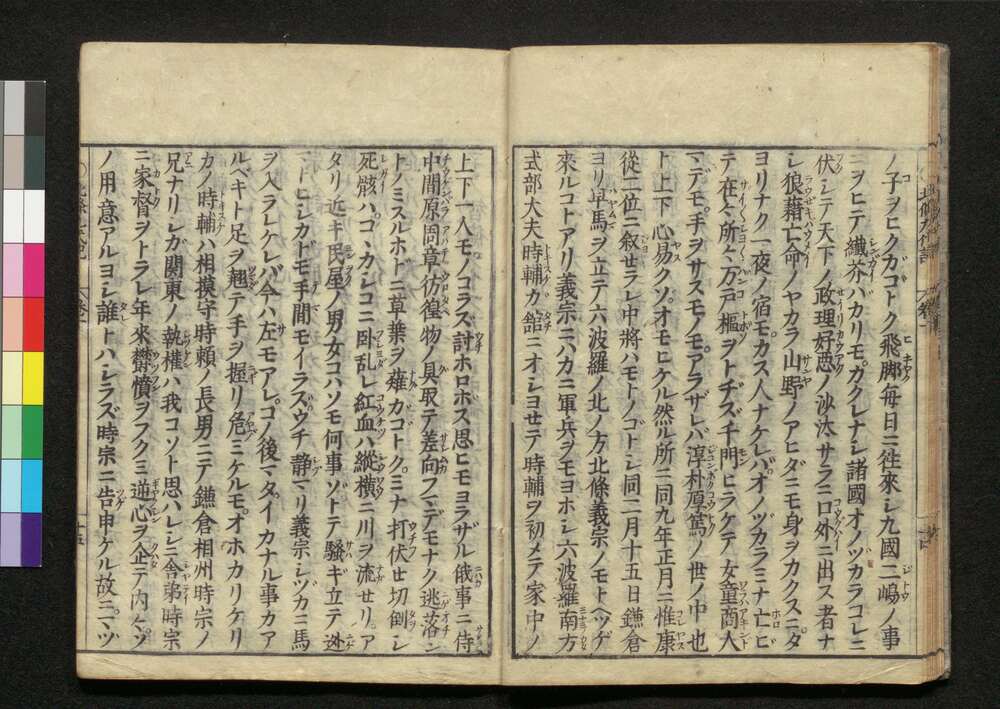 ノ子ヲヒクガゴトク飛脚毎日ニ徃來シ九國二嶋ノ事
ニヲヒテ纖芥バカリモカクレナシ諸國オノヅカラコレニ
伏シテ天下ノ政理好悪ノ沙汰サラニ口外ニ出ス者ナ
シ狼藉亡命ノヤカラ山野ノアヒダニモ身ヲカクスニタ
ヨリナク一夜ノ宿モカス人ナケレバオノヅカラミナ亡ビ
テ在々所々万戸樞ヲトヂズ千門ヒラケテ女童商人
マデモ手ヲサスモノモアラザレバ淳朴原篤ノ世ノ中也
ト上下心易クゾオモヒケル然ル所ニ同九年正月ニ惟康
從二位ニ叙せラレ中將ハモトノゴトシ同二月十五日鎌倉
ヨリ早馬ヲ立テ六波羅ノ北ノ方北條義宗ノモトヘツゲ
來ルコトアリ義宗ニハカニ軍兵ヲモヨホシ六波羅南方
式部大夫時輔ガ舘ニオシヨせテ時輔ヲ初メテ家中ノ
上下一人モノコラズ討ホロボス思ヒモヨラザル俄事ニ侍
中間原周章彷徨物ノ具取テ差向フマデモナク逃落ン
トノミスルホドニ草葉ヲ薙ガゴトクミナ打伏せ切倒シ
死骸ハコヽカシコニ卧乱レ紅血ハ縱横ニ川ヲ流せリア
タリ近キ民屋ノ男女コハソモ何事ゾトテ騒ギ立テ迯
マドヒシカドモ手間モイラズウチ静マリ義宗シヅカニ馬
ヲ入ラレケレバ今ハ左モアレコノ後マタイカナル事カア
ルベキト足ヲ翹テ手ヲ握リ危ミケルモオホカリケリ
カノ時輔ハ相摸守時頼ノ長男ニテ鎌倉相州時宗ノ
兄ナリシガ關東ノ執権ハ我コソト思ハレシニ舎弟時宗
ニ家督ヲトラレ年來欝憤ヲフクミ逆心ヲ企テ内々ソ
ノ用意アルヨシ誰トハシラズ時宗ニ告申ケル故ニマヅ